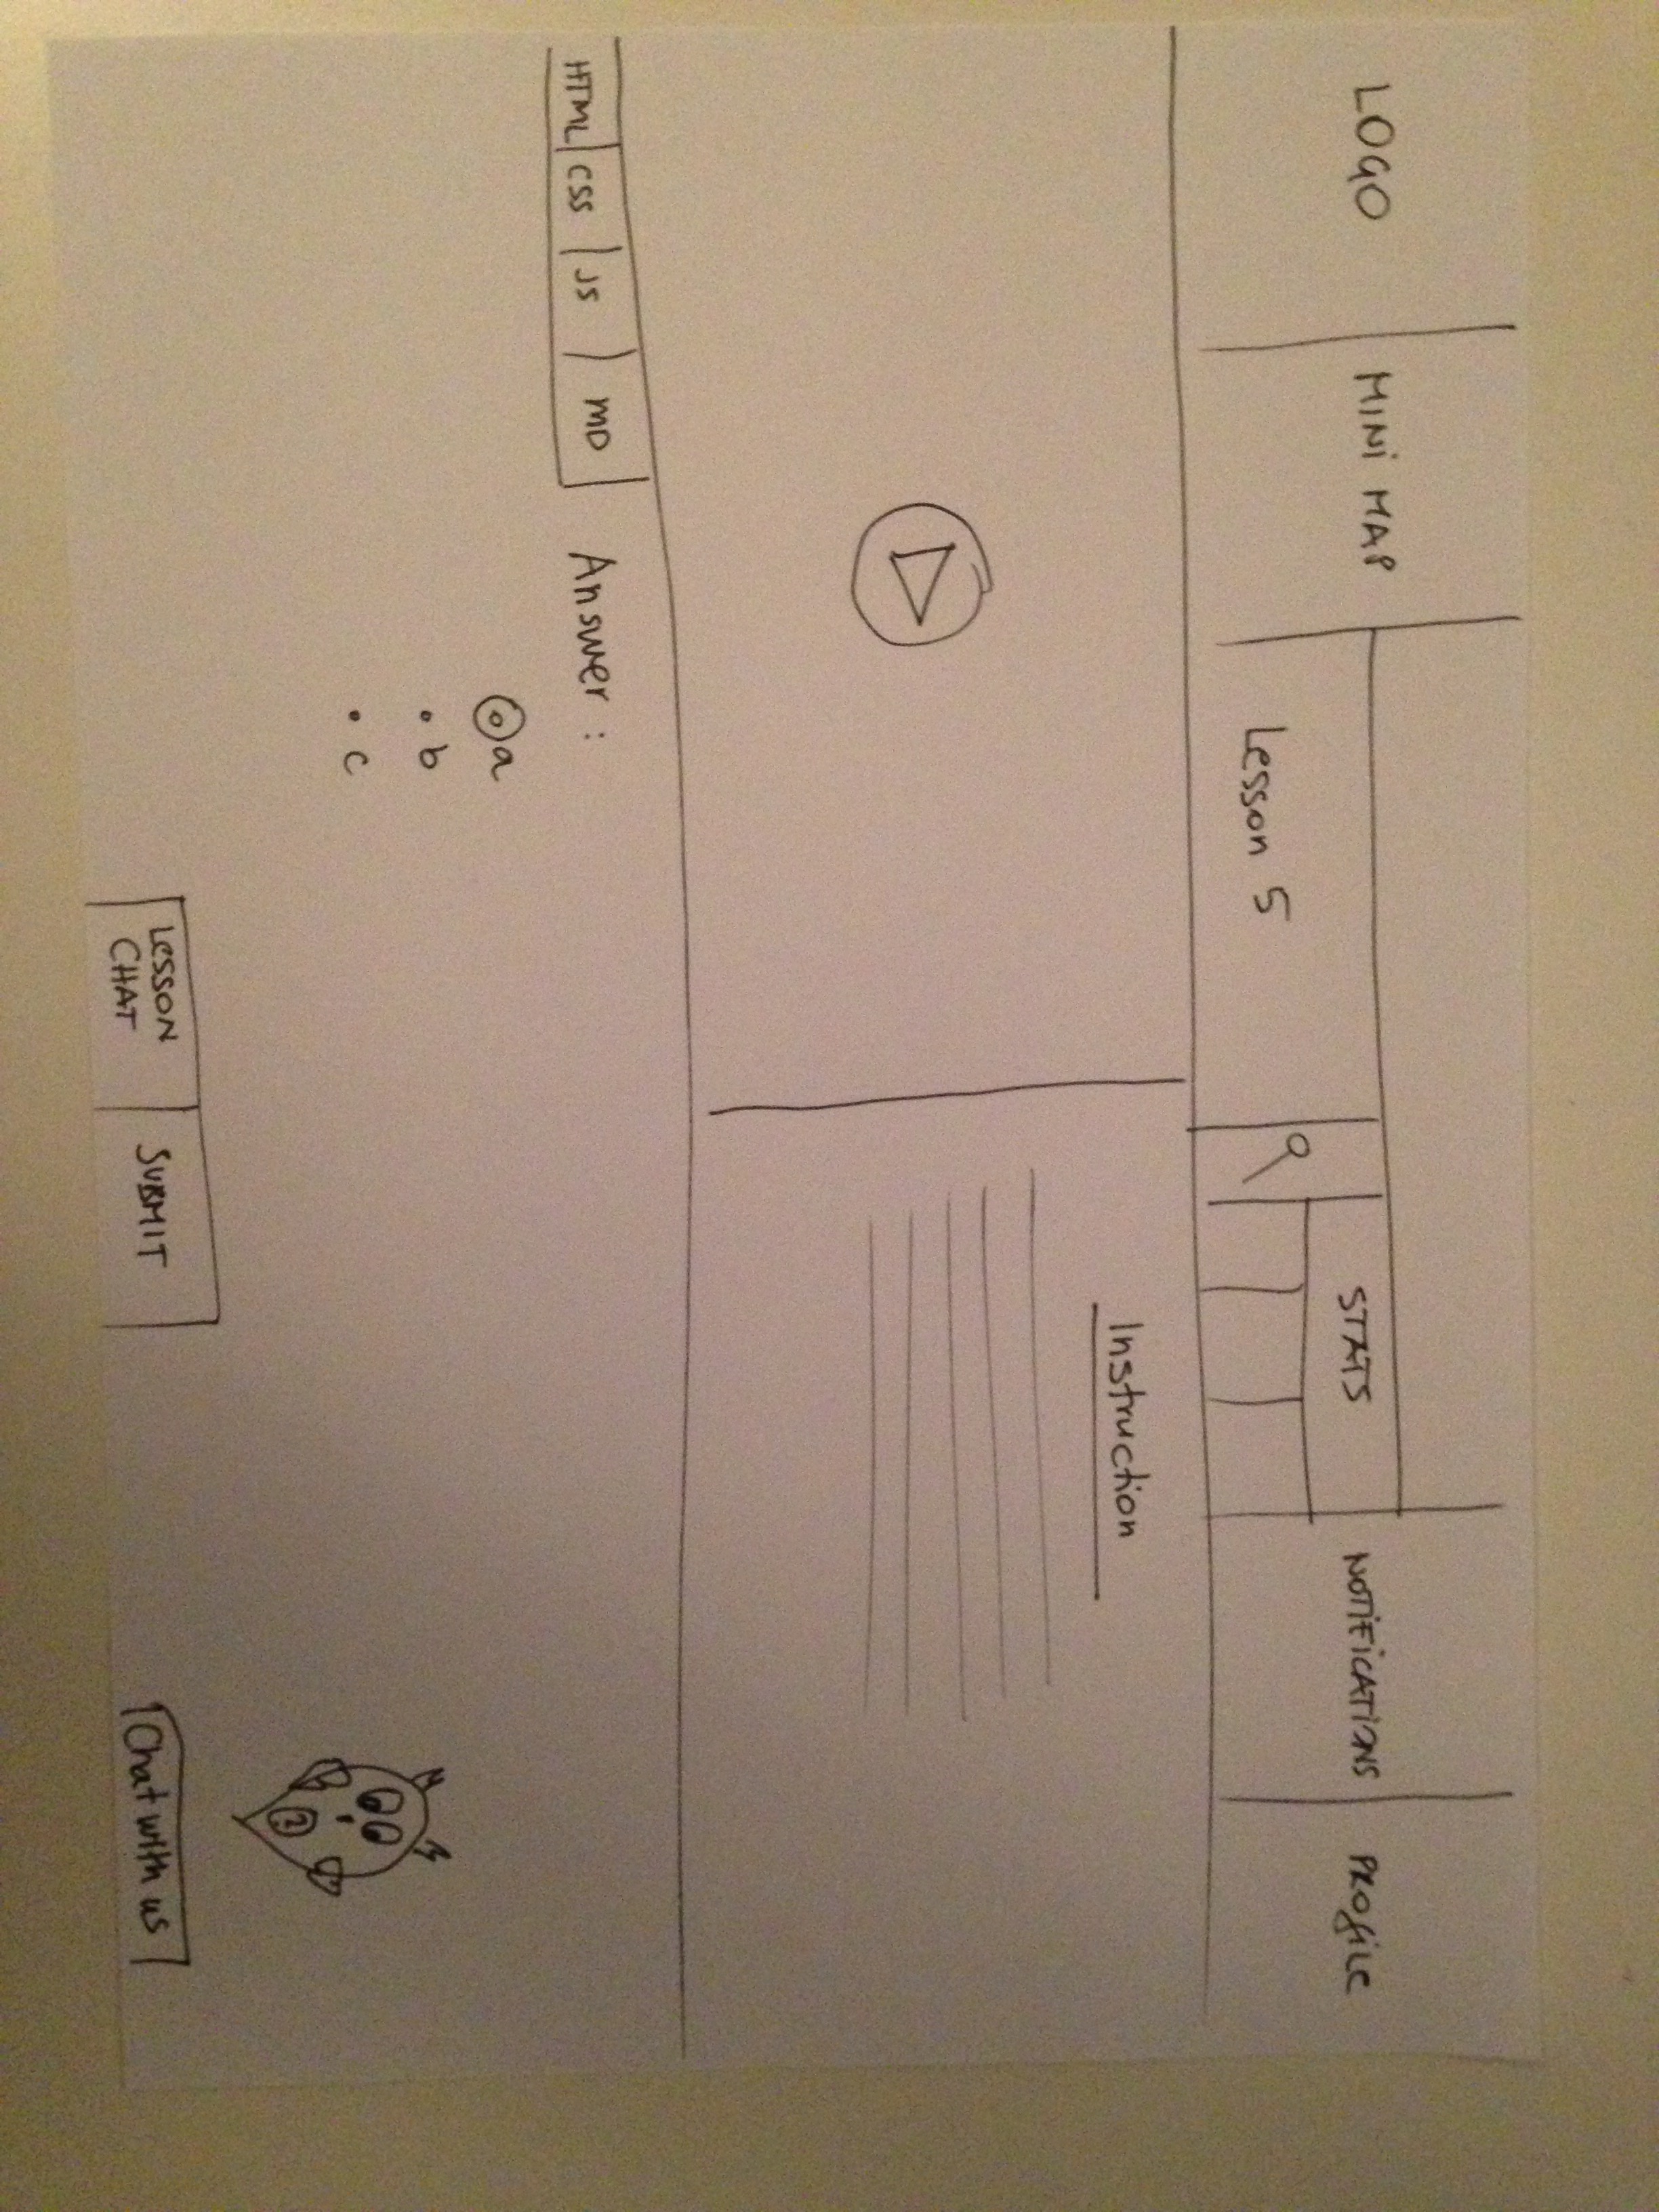 LOGO
MINI MAP
Lesson 5
STATS
NOTIFICATIONS
PROFILE
Instruction
HTML
CSS
JS
MD
Answer :
a
b
c
LESSON
CHAT
SUBMIT
?
Chat with us